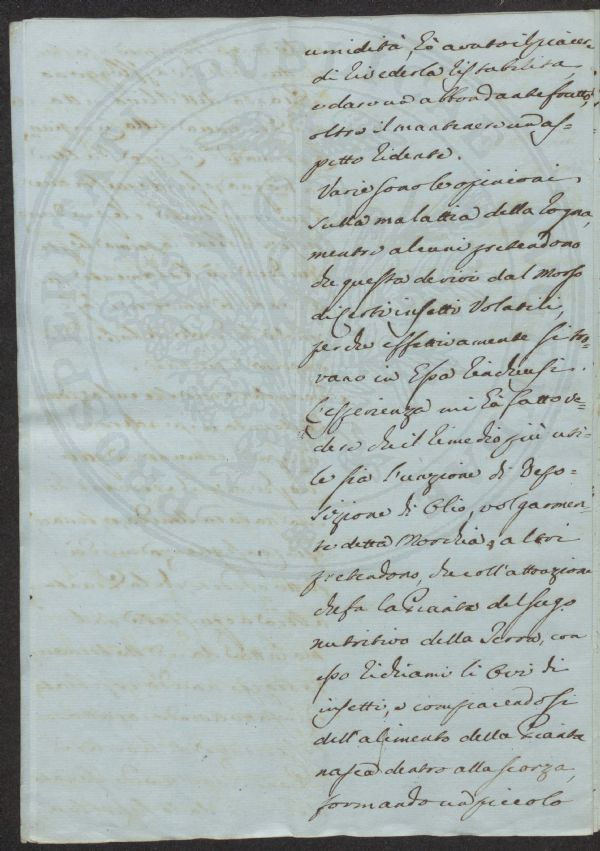 umidità, hò avuto il piacere
di rivederla ristabilita,
e dare un abbondante frutto,
oltre il mantenere un as-
petto ridente.
Varie sono le opinioni
sulla malattia della rogna,
mentre alcuni pretendono
che questa derivi dal morso
di certi insetti Volatili,
perchè effettivamente si tro-
vano in essa rinchiusi.
L'esperienza mi hà fatto ve-
dere che il rimedio più uti-
le sia l'unzione di Depo-
sizione di Olio, volgarmen-
te detta Morchia, altri
pretendono, che coll'attrazione
che fa la Pianta del sugo
nutritivo della Terra, con
esso richiami li Ovi di
insetti, e compiacendosi
dell'alimento della Pianta
nasca dentro alla scorza,
formando un piccolo
PROSPERITATI PUBLICAE